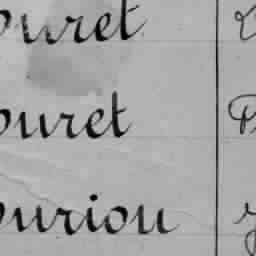 ouret
ouret
ouriou